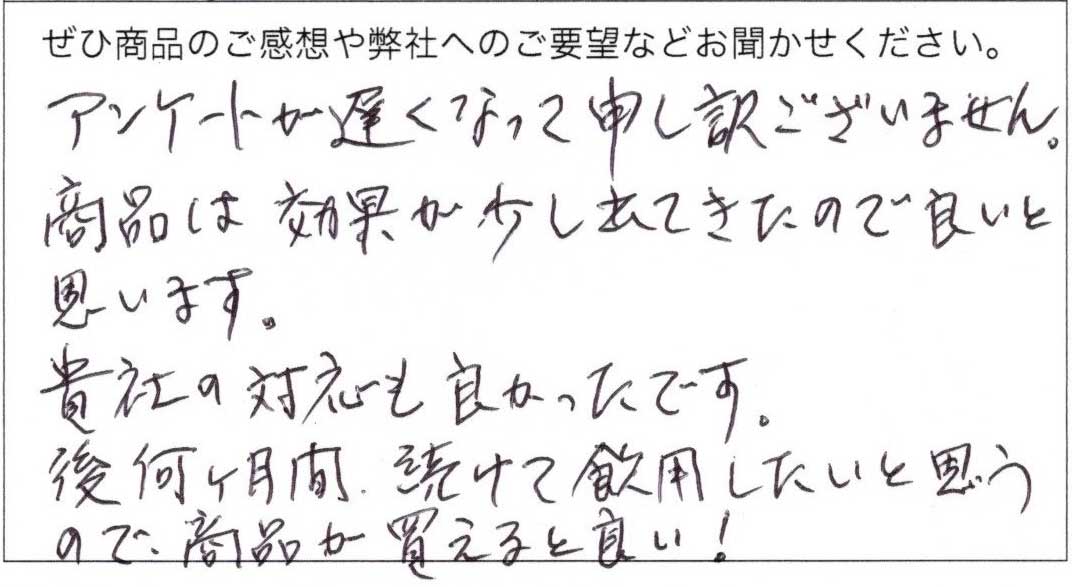 ぜひ商品のご感想や弊社へのご要望などお聞かせください。
アンケートが遅くなって申し訳ございません。
商品は効果が少し出てきたので良いと
思います。
貴社の対応も良かったです。
後何ヶ月間、続けて飲用したいと思う
ので、商品が買えると良い！